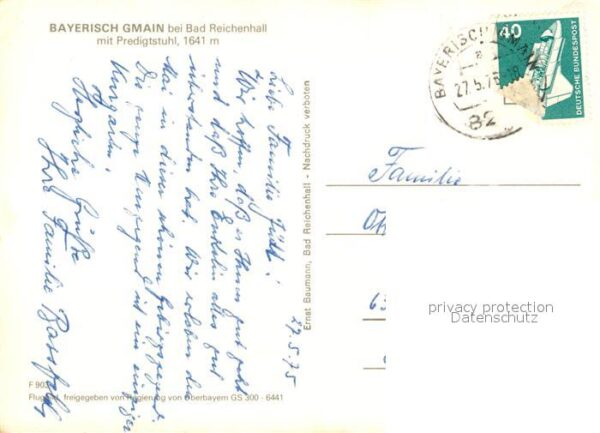 BAYERISCH GMAIN bei Bad Reichenhall
mit Predigtstuhl, 1641 m
27.5.75
Liebe Familie
Wir hoffen, daß es Ihnen gut geht
und daß Ihre Enkelin alles gut
überstanden hat. Wir erleben den
Mai in dieser schönen Gebirgsgegend.
Die ganze Umgegend ist ein einziger
Kurgarten.
Herzliche Grüße
Ihre Familie
F 903
freigegeben von Regierung von Oberbayern GS 300 - 6441
Ernst Baumann, Bad Reichenhall - Nachdruck verboten
BAYERISCH GMAIN
a
27.5.75
82
40
DEUTSCHE BUNDESPOST
Familie
privacy protection
Datenschutz